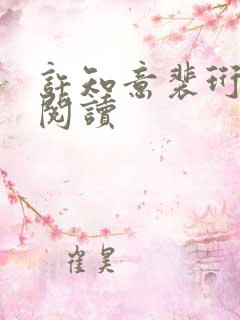 許知意裴珩
閱讀
崔昊